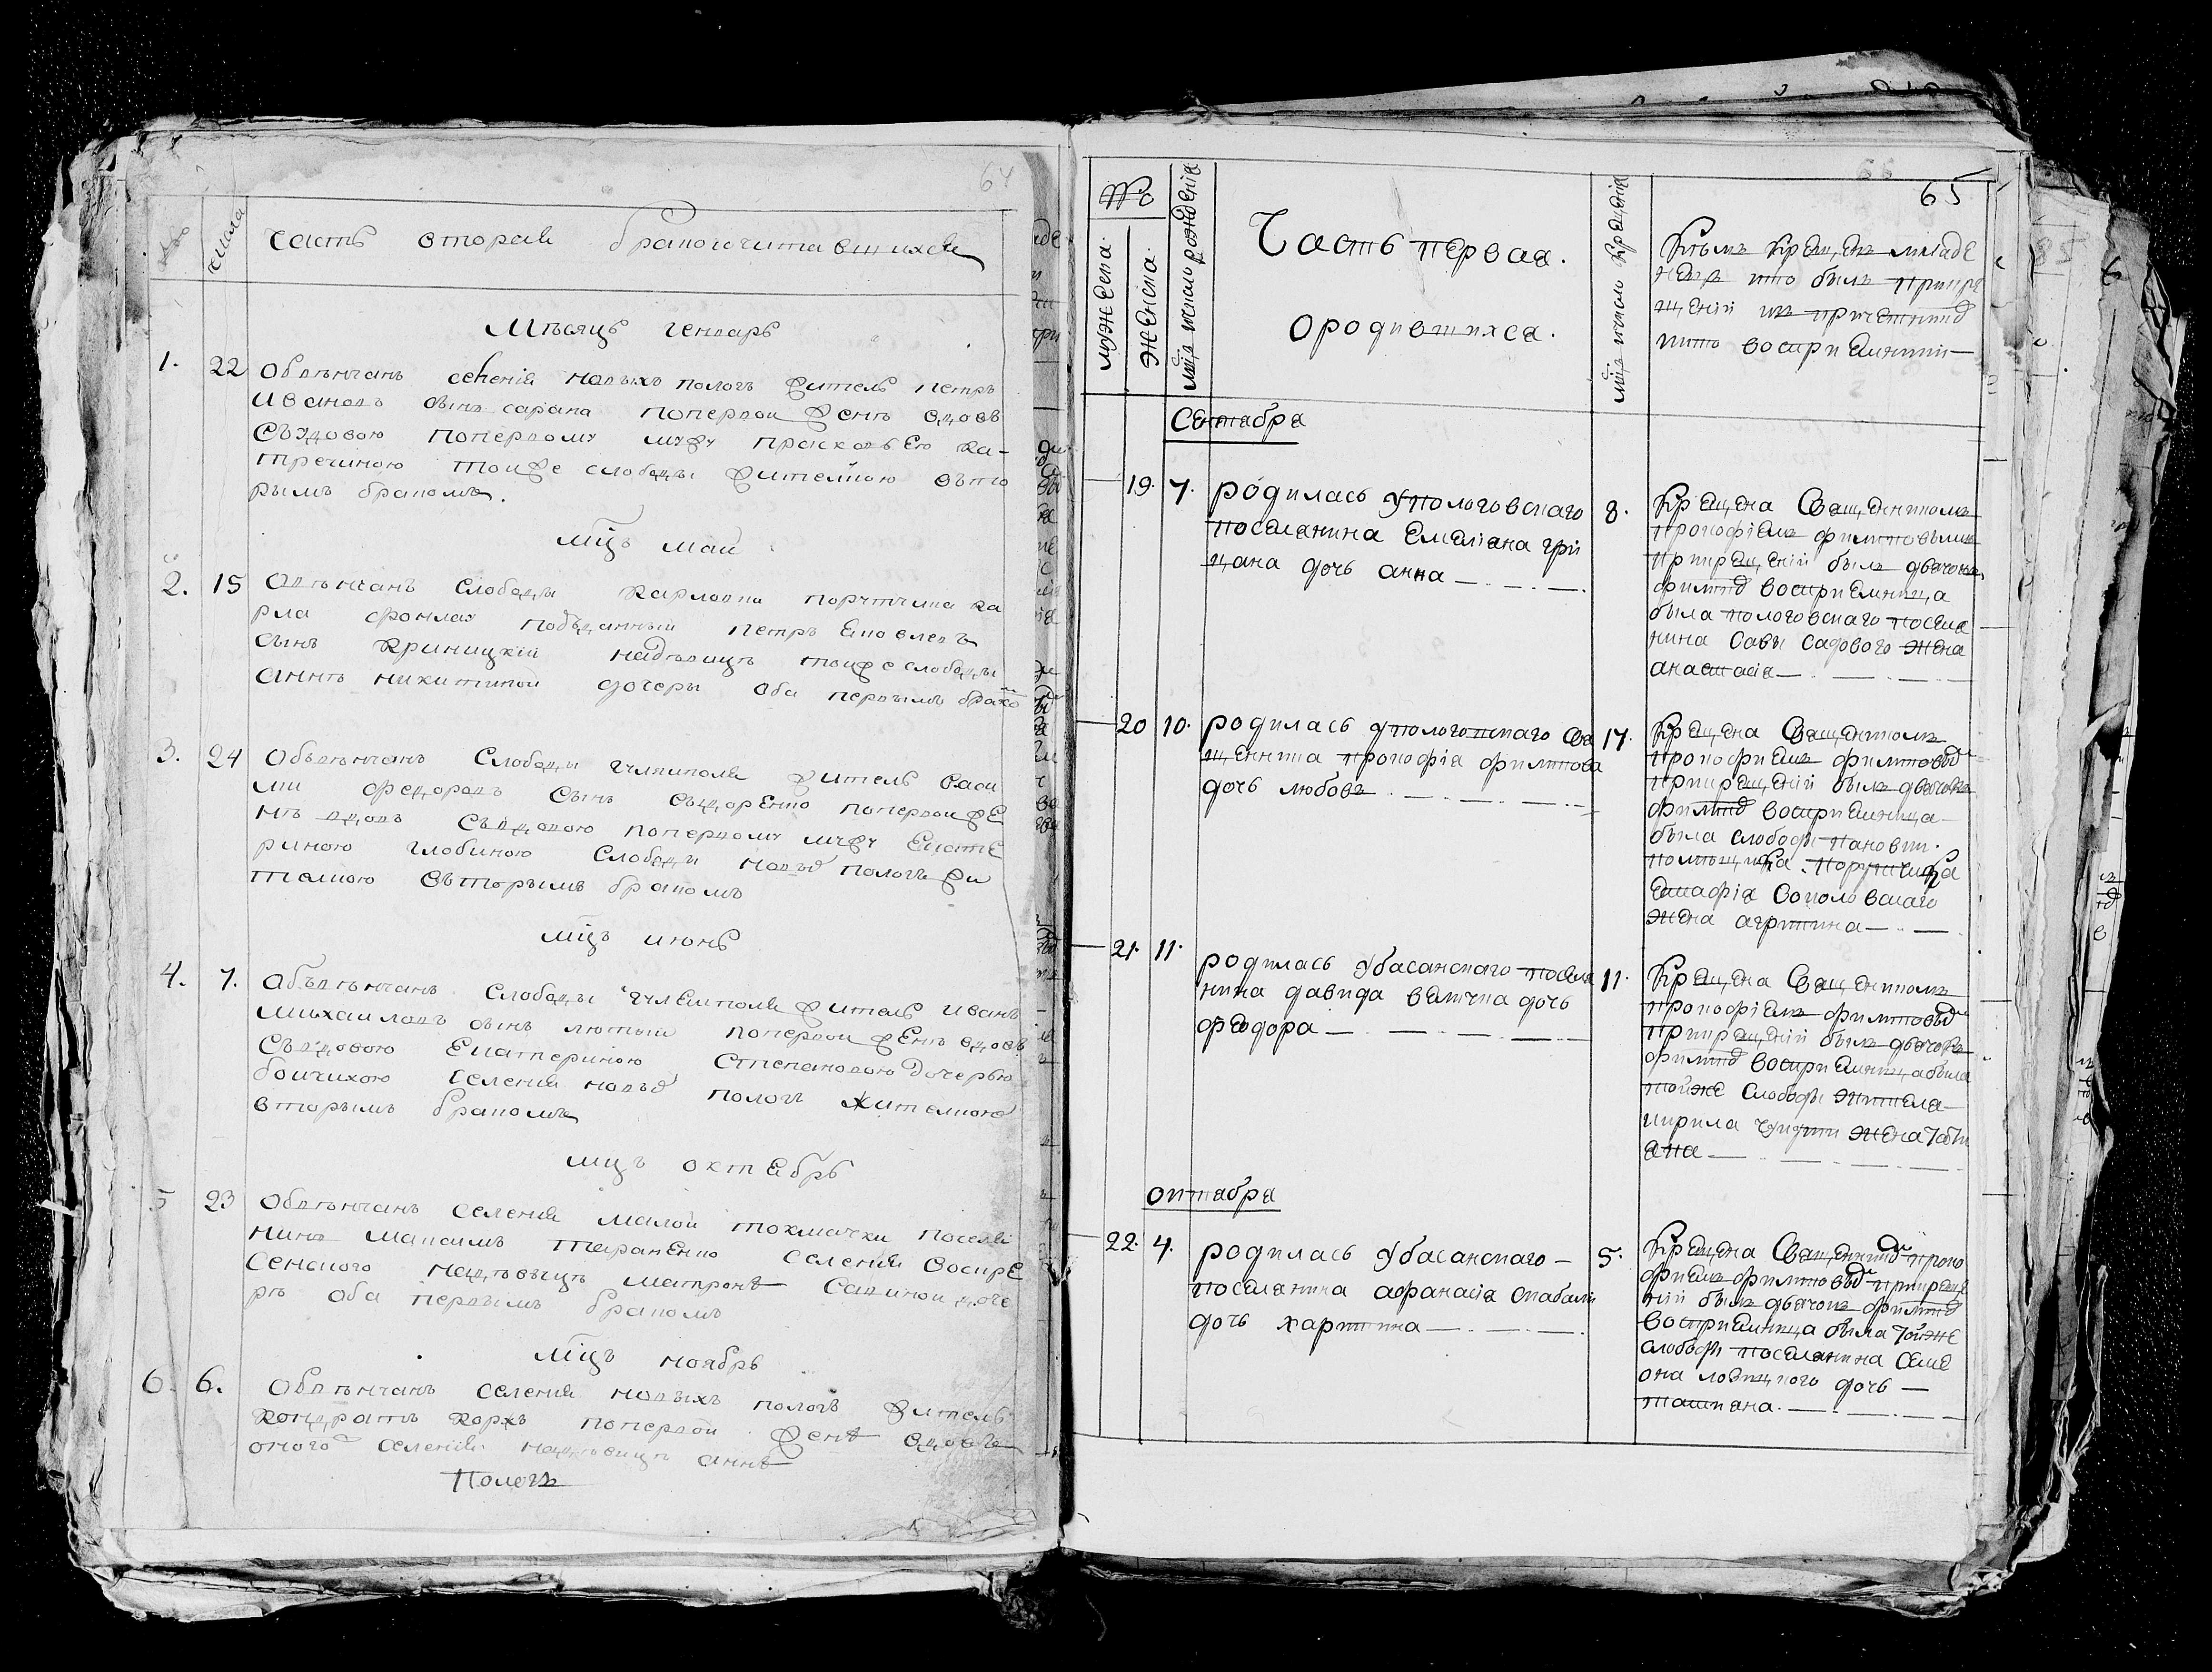 64
числа
часть вторая бракосочитавшихся
Мѣсяцъ генварь
1. 22 Обвѣнчанъ селенія новыхъ пологъ житель петръ
Ивановъ сынъ сарана поперъвои женѣ вдовъ
Съвдовою поперъвому мужу прасковьею ка-
тречиною тоиже слободы жителкою въто
рымъ бракомъ.
мцъ маи
2. 15 Обвѣнчанъ слободы карловки порутчика ка
рла подъданный петръ
сынъ криницкіи надѣвицѣ тоиже слободы
аннѣ никитинои дочери оба первымъ брако
3. 24 Объвѣнчанъ слободы гуляиполя житель васи
ли федоровъ сынъ сыдоренко поперъвои же
нѣ вдовъ съвдовою поперъвому мужу екате
риною глобиною слободы новыхъ пологъ жи
телкою въторымъ бракомъ
мцъ июнь
4. 7. Объвѣнчанъ слободы гуляиполя житель иванъ
михаиловъ сынъ лютыи поперъвои женѣ вдовъ
Съвдовою Екатериною Степановою дочерью
боичихою селенія новыхъ пологъ жителкою
вторымъ бракомъ
мцъ октебрь
5 23 Обвѣнчанъ селенія малои токмачки поселя
нинъ максимъ тараненко селенія воскре
сенского надѣвицѣ матронѣ савинои доче
рѣ оба первымъ бракомъ
мцъ ноябрь
6. 6. Обвѣнчанъ селенія новыхъ пологъ житель
кондратъ коржъ поперъвои женѣ вдовъ
оного селенія надѣвицѣ аннѣ
пологъ
65
№
мужеска.
женска.
мцъ ичисло рожденія
Часть первая.
Ородившихся.
мцъ ичисло крещенія
Кѣмъ крещенъ младе
нецъ кто былъ прикре
щеніи изъ причетнико
икто воспріемники
Сентября
19. 7. родилась упологовскаго
поселянина емеліана гри
цана дочь анна
8. крещена Священникомъ
прокофіемъ филиповымъ
прикрещеніи былъ дьячокъ
филипо воспріемница
была пологовскаго поселя
нина савы садового жена
анастасія
20 10. родилась упологовскаго Свя
щенника прокофія филипова
дочь любовъ
17. крещена Священникомъ
прокофиемъ филиповым
прикрещеніи былъ дьячокъ
филипо воспріемница
была слободы панов
помѣщика порутчика
вокоповскаго
жена агрипина
21. 11. родилась убасанскаго поселя
нина давида величка дочь
феодора
11. крещена Священникомъ
прокофіемъ филиповым
прикрещеніи былъ дьячокъ
филипо воспріемница была
тойже слободы жителя
кирила жена тати
яна
октября
22. 4. родилась убасанскаго
поселянина афанасія скабали
дочь харитина
5. крещена Священником проко
фиемъ филиповым прикреще
ніи былъ дьячокъ филипо
воспріемница была тойже
слободы поселянина семе
она ловицкого дочь
татияна.